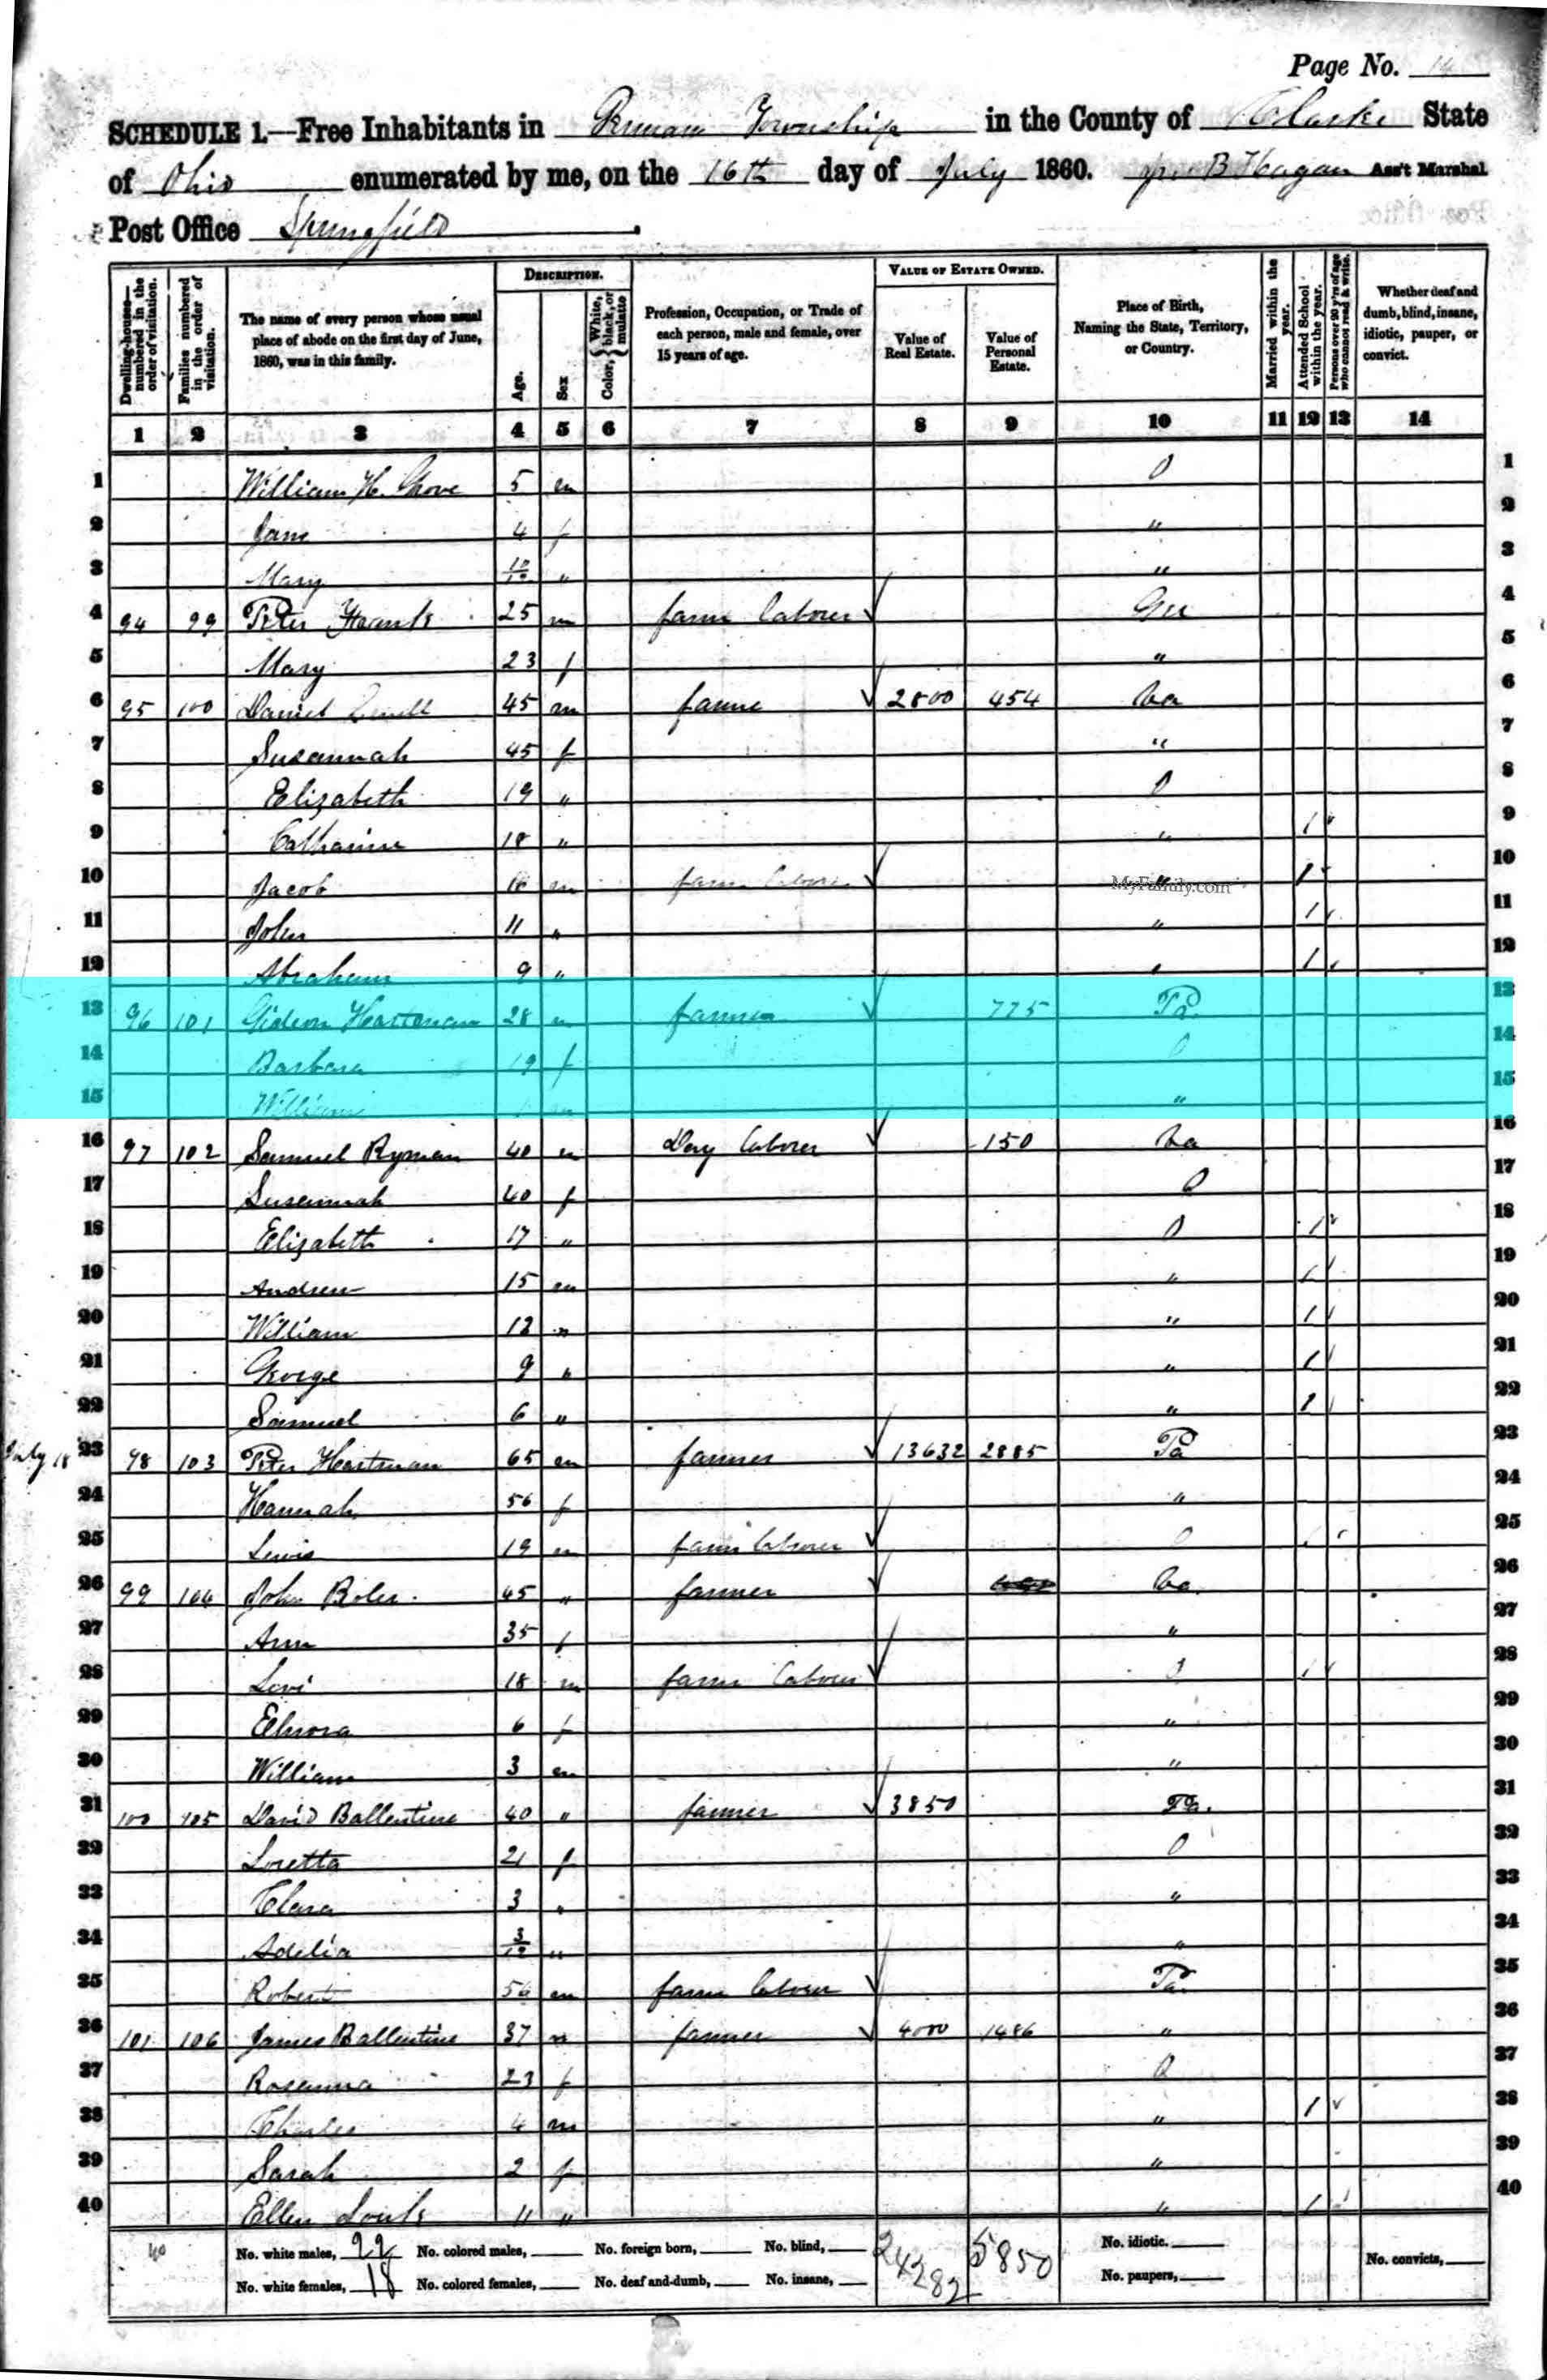 Page No. 14
SCHEDULE 1.—Free Inhabitants in German Township in the County of Clarke State
of Ohio enumerated by me, on the 16th day of July 1860. B Hagan Ass't Marshal
Post Office Springfield.
Dwelling-houses— numbered in the order of visitation.
Families numbered in the order of visitation.
The name of every person whose usual place of abode on the first day of June, 1860, was in this family.
DESCRIPTION.
Age.
Sex
Color, { White, black, or mulatto
Profession, Occupation, or Trade of each person, male and female, over 15 years of age.
VALUE OF ESTATE OWNED.
Value of Real Estate.
Value of Personal Estate.
Place of Birth, Naming the State, Territory, or Country.
Married within the year.
Attended School within the year.
Persons over 20 y'rs of age who cannot read & write.
Whether deaf and dumb, blind, insane, idiotic, pauper, or convict.
1 2 3 4 5 6 7 8 9 10 11 12 13 14
1 William H. Grove 5 m O 1
2 Jane 4 f " 2
3 Mary 10/12 " " 3
4 94 99 Peter 25 m farm laborer Ger 4
5 Mary 23 f " 5
6 95 100 Daniel 45 m farme 2800 454 Va 6
7 Susannah 45 f " 7
8 Elizabeth 19 " O 8
9 Catharine 18 " " 1 9
10 Jacob 16 m farm laborer " 1 10
MyFamily.com
11 John 11 " " 1 11
12 Abraham 9 " " 1 12
13 96 101 Gideon Hartman 28 m farmer 775 Pa. 13
14 Barbara 19 f O 14
15 William 1 m " 15
16 97 102 Samuel Ryman 40 m Day laborer 150 Va 16
17 Susannah 40 f O 17
18 Elizabeth 17 " O 1 18
19 Andrew 15 m " 1 19
20 William 12 " " 1 20
21 George 9 " " 1 21
22 Samuel 6 " " 1 22
July 18 23 98 103 Peter Hartman 65 m farmer 13632 2885 Pa 23
24 Hannah 56 f " 24
25 Lewis 19 m farm laborer O 1 25
26 99 104 John Roler 45 " farmer Va. 26
27 Ann 35 f " 27
28 Levi 18 m farm laborer O 1 28
29 Elnora 6 f " 29
30 William 3 m " 30
31 100 105 David Ballentine 40 " farmer 3850 Pa. 31
32 Loretta 21 f O 32
33 Clara 3 " " 33
34 Adelia 3/12 " " 34
35 Robert 54 m farm laborer Pa. 35
36 101 106 James Ballentine 37 m farmer 4000 1486 " 36
37 Rosanna 23 f O 37
38 Charles 4 m " 1 38
39 Sarah 2 f " 39
40 Ellen 11 " " 1 40
40 No. white males, 22 No. colored males, No. foreign born, No. blind, 24282 5850 No. idiotic. No. convicts,
No. white females, 18 No. colored females, No. deaf and dumb, No. insane, No. paupers,